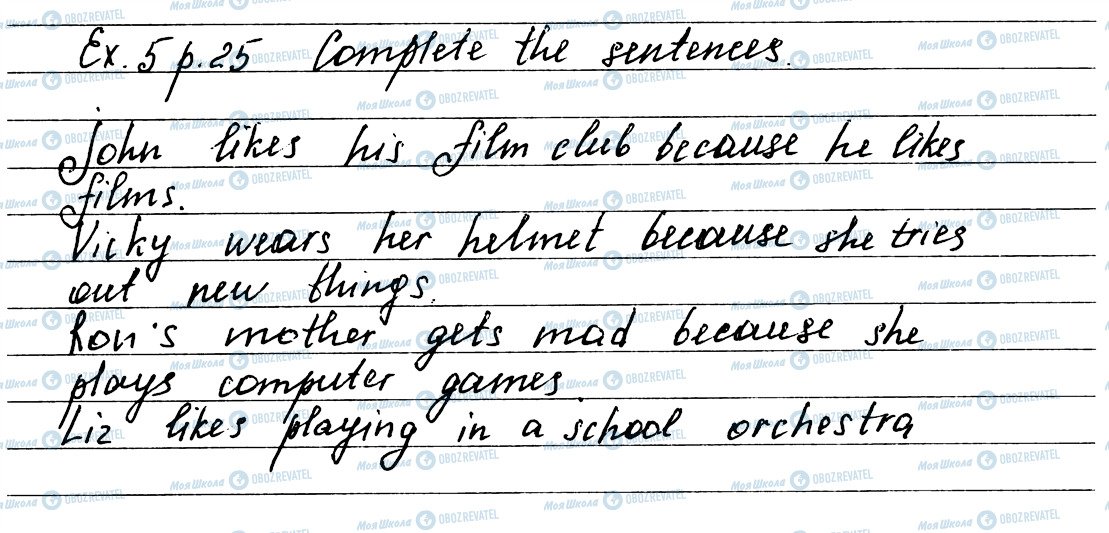 Ex. 5 p. 25 Complete the sentences.
John likes his film club because he likes
films.
Vicky wears her helmet because she tries
out new things.
Ron's mother gets mad because she
plays computer games.
Liz likes playing in a school orchestra